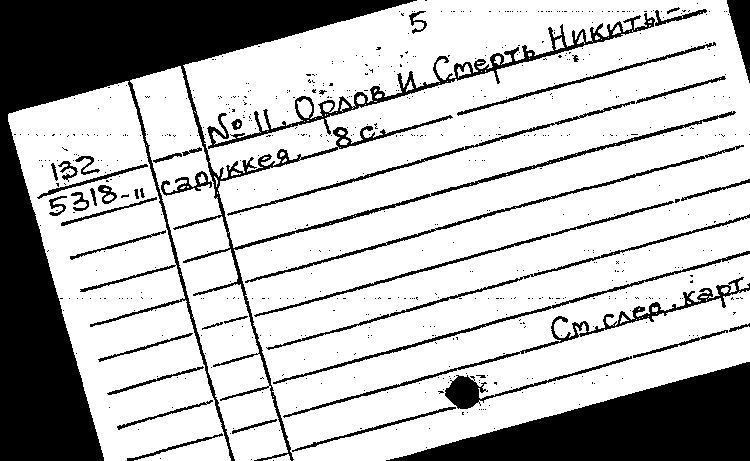 5
№ 11. Орлов И. Смерть Никиты-
132
5318-11 садуккея. 8 с.
См. след. карт.